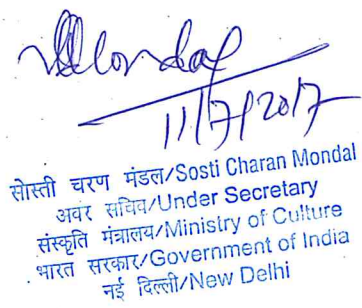 Mondal
11/7/2017
सोस्ती चरण मंडल/Sosti Charan Mondal
अवर सचिव/Under Secretary
संस्कृति मंत्रालय/Ministry of Culture
भारत सरकार/Government of India
नई दिल्ली/New Delhi